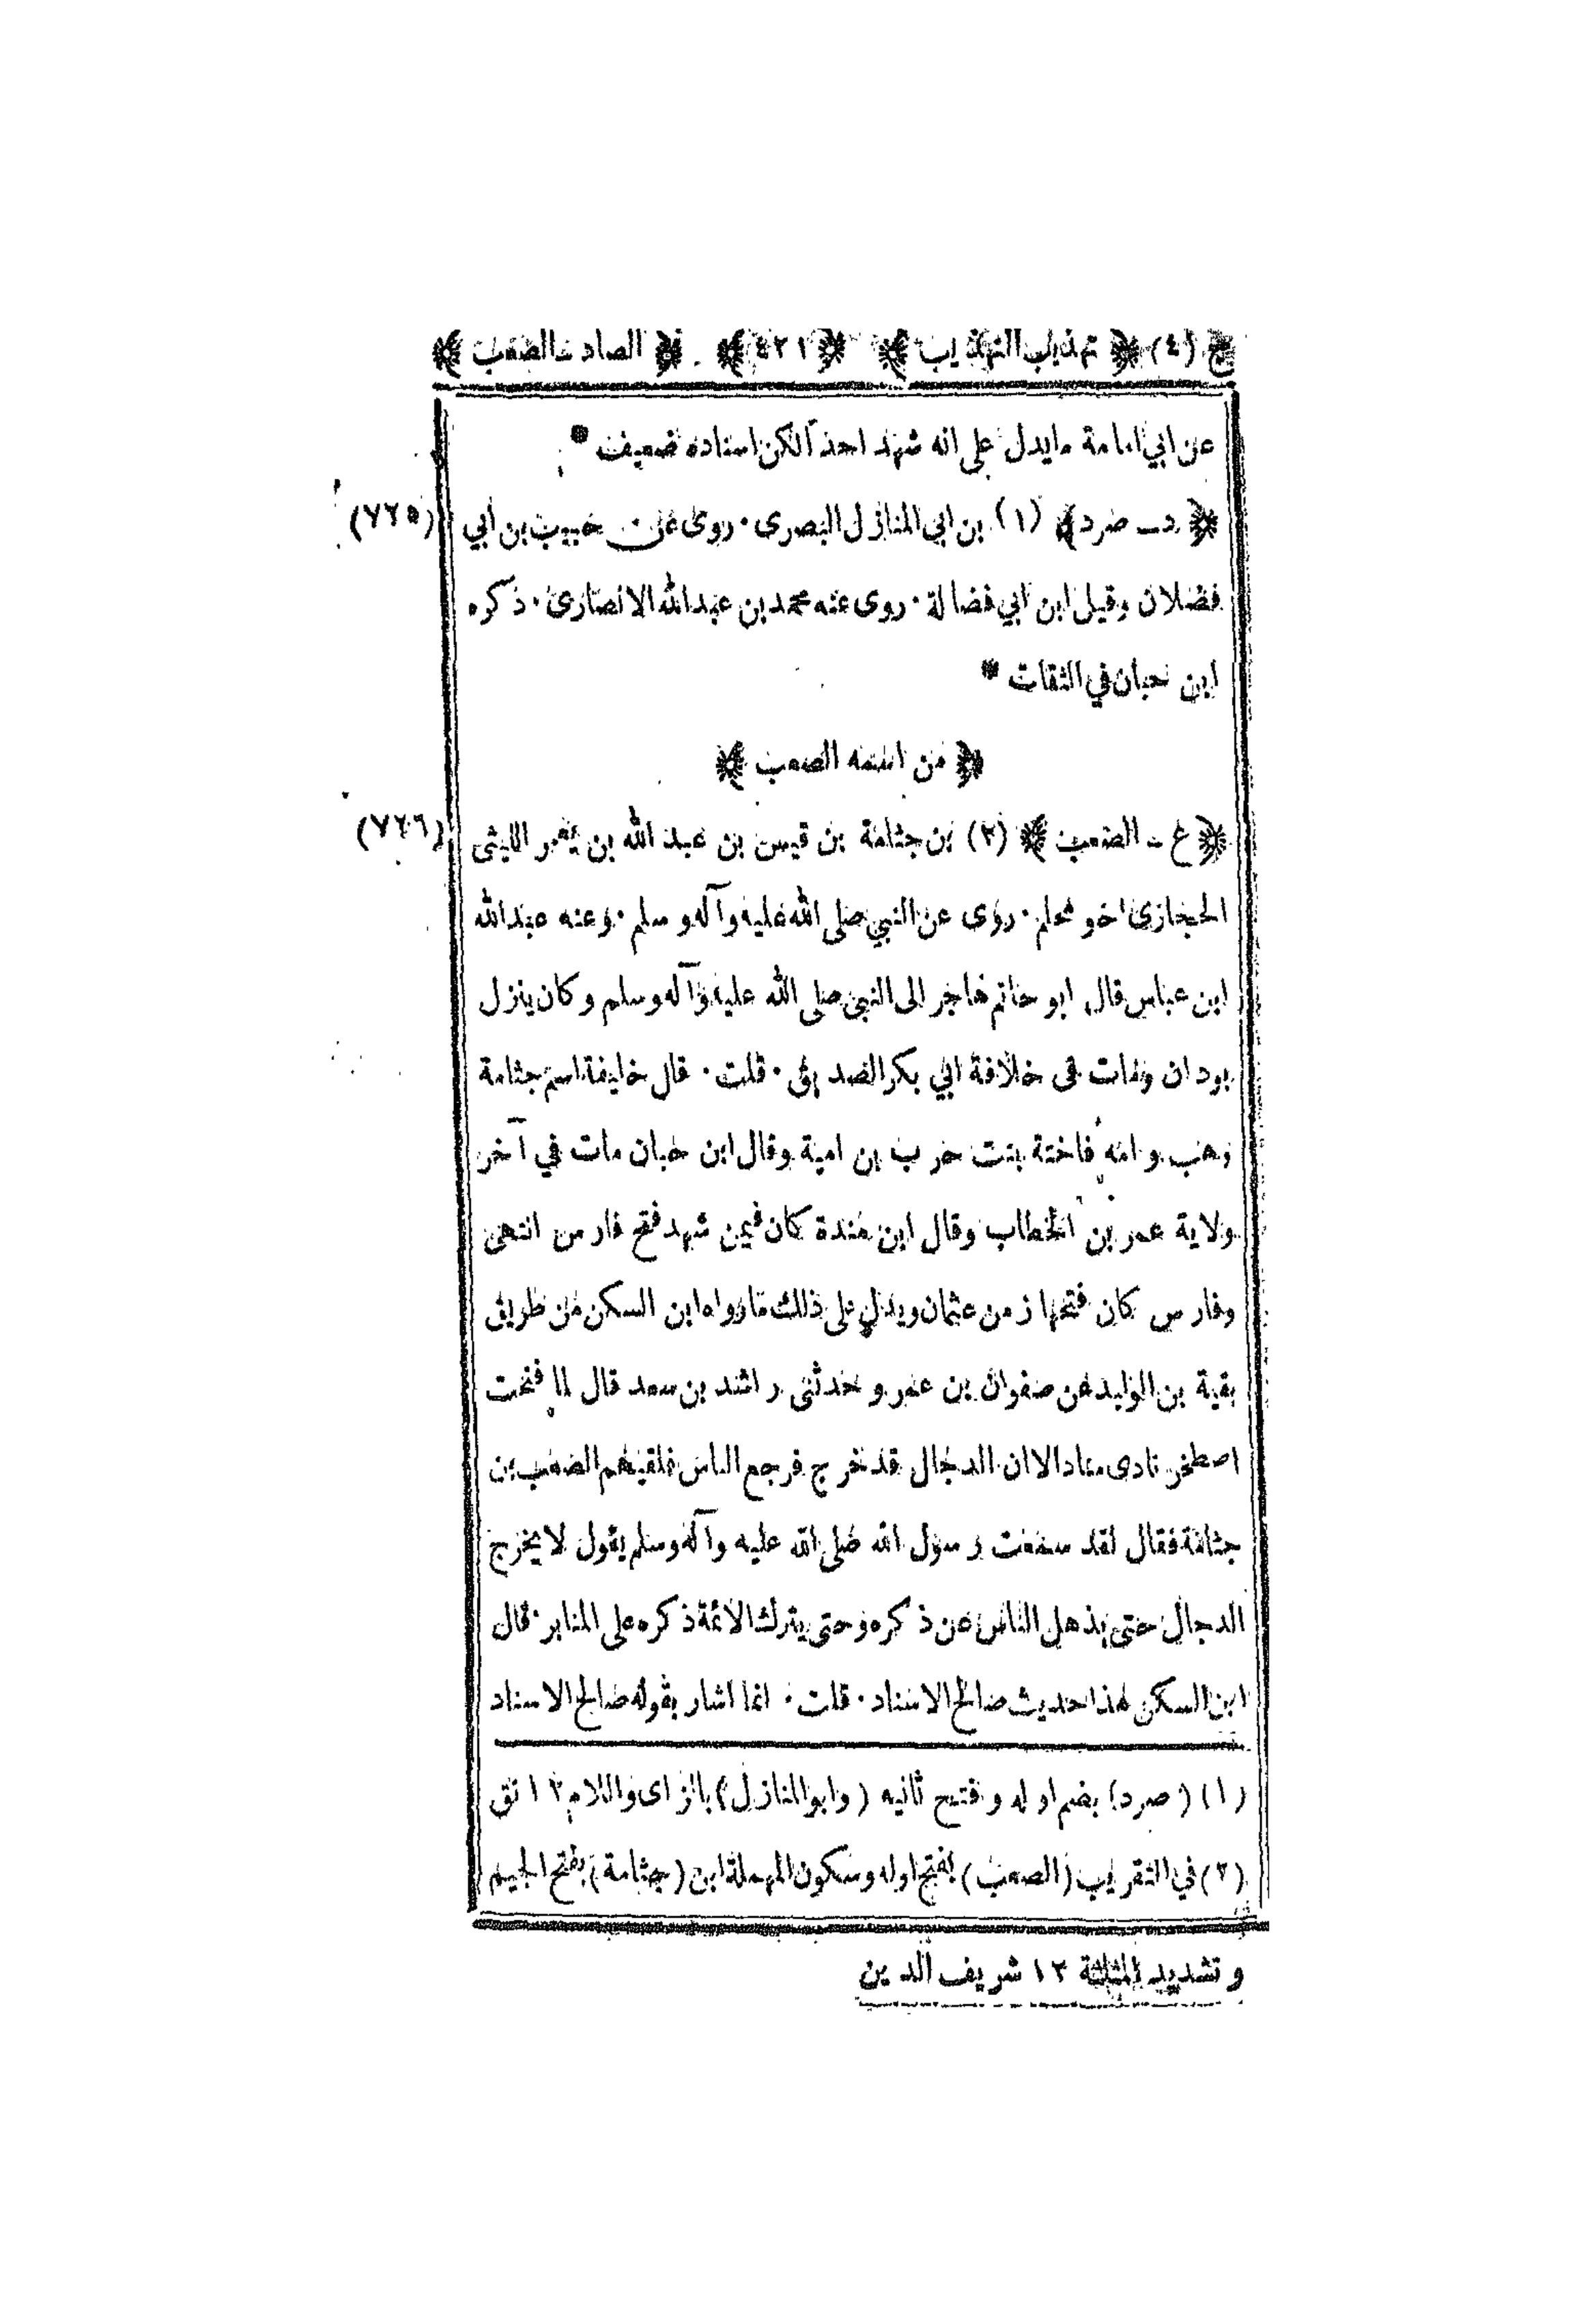 ج (٤) ﴿ تهذيب التهذيب ﴾ ﴿ ٤٢١ ﴾ ﴿ الصاد - الصعب ﴾
عن ابي امامة ما يدل على انه شهد احدا لكن اسناده ضعيف *
﴿ د - صرد ﴾ (١) بن ابي المنازل البصرى · روى عن حبيب بن ابي (٧٢٥)
فضلان وقيل ابن ابي فضالة · روى عنه محمد بن عبد الله الانصارى · ذكره
ابن حبان في الثقات *
﴿ من اسمه الصعب ﴾
﴿ ع - الصعب ﴾ (٢) بن جثامة بن قيس بن عبد الله بن يعمر الليثى (٧٢٦)
الحجازى اخو محلم · روى عن النبي صلى الله عليه وآله وسلم · وعنه عبد الله
ابن عباس قال ابو حاتم هاجر الى النبي صلى الله عليه وآله وسلم وكان ينزل
بودان ومات فى خلافة ابي بكر الصديق · قلت · قال خليفة اسم جثامة
وهب وامه فاختة بنت حرب بن امية وقال ابن حبان مات في آخر
ولاية عمر بن الخطاب وقال ابن مندة كان فيمن شهد فتح فارس انتهى
وفارس كان فتحها زمن عثمان ويدل على ذلك ما رواه ابن السكن من طريق
بقية بن الوليد عن صفوان بن عمرو حدثنى راشد بن سعد قال لما فتحت
اصطخر نادى مناد الا ان الدجال قد خرج فرجع الناس فلقيهم الصعب بن
جثامة فقال لقد سمعت رسول الله صلى الله عليه وآله وسلم يقول لا يخرج
الدجال حتى يذهل الناس عن ذكره وحتى يترك الائمة ذكره على المنابر · قال
ابن السكن هذا حديث صالح الاسناد · قلت · انما اشار بقوله صالح الاسناد
(١) (صرد) بضم اوله وفتح ثانيه (وابو المنازل) بالزاى واللام ١٢ تق
(٢) في التقريب (الصعب) بفتح اوله وسكون المهملة ابن (جثامة) بفتح الجيم
وتشديد المثلثة ١٢ شريف الدين